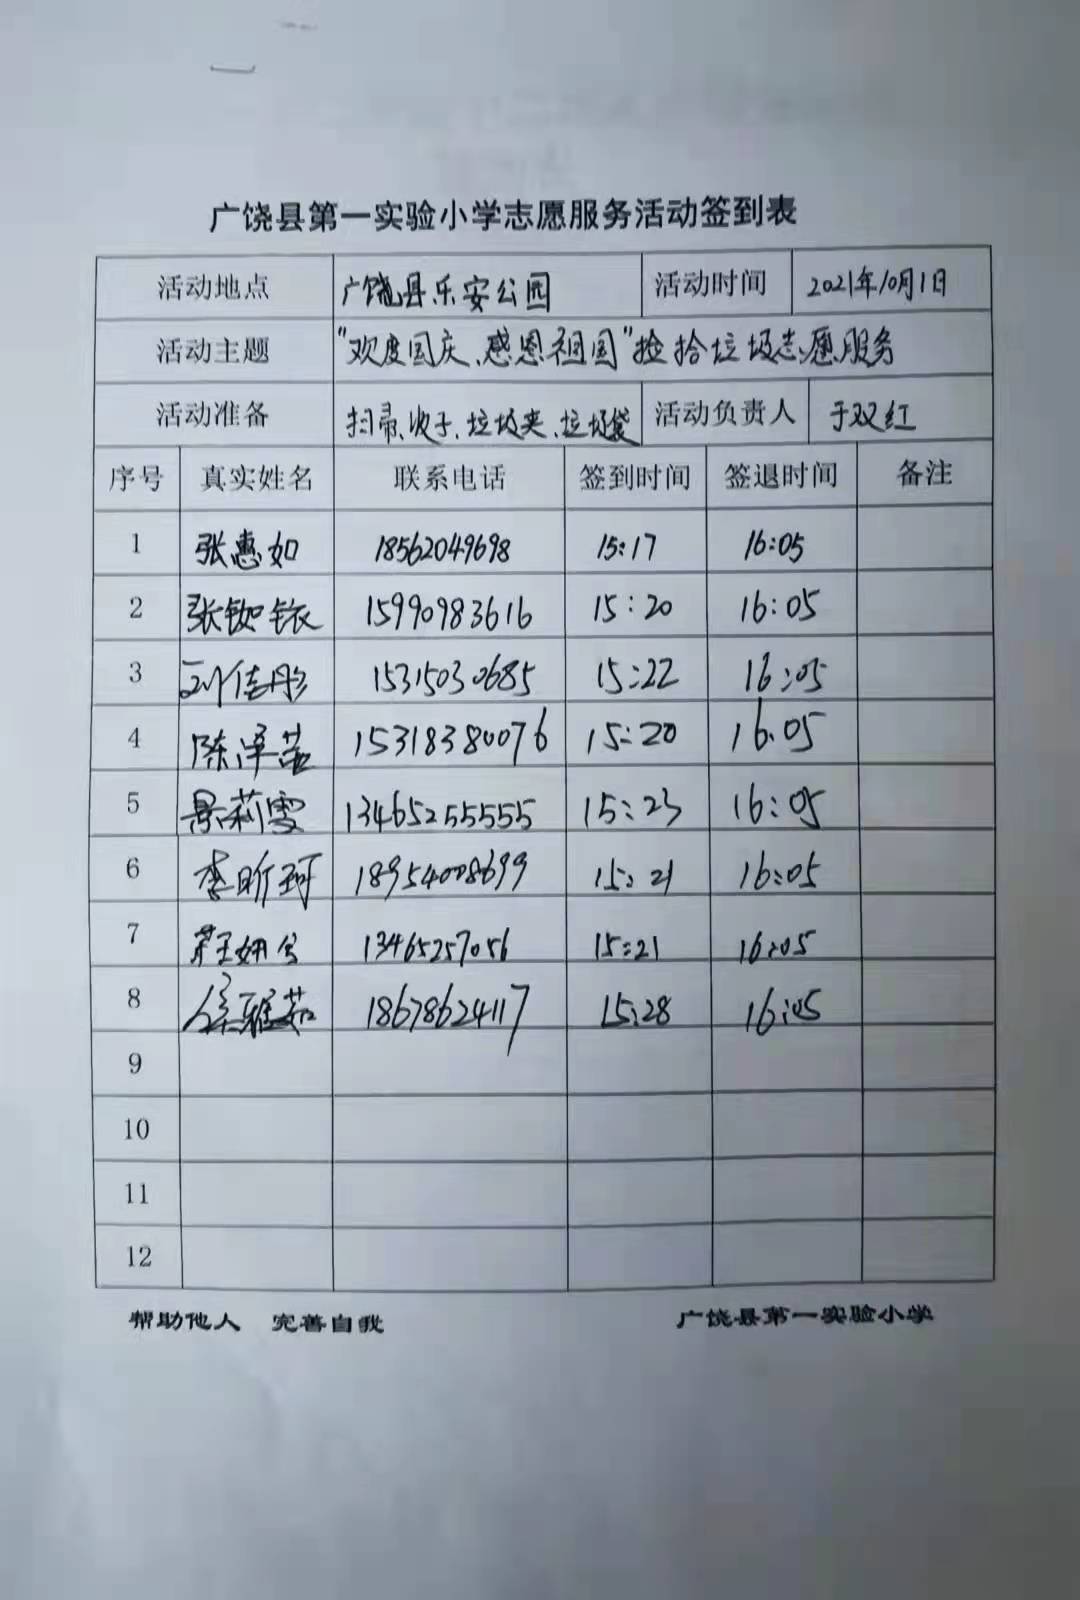 广饶县第一实验小学志愿服务活动签到表
活动地点 广饶县乐安公园 活动时间 2021年10月1日
活动主题 "欢度国庆、感恩祖国"捡拾垃圾志愿服务
活动准备 扫帚、 垃圾夹、垃圾袋 活动负责人 于双红
序号 真实姓名 联系电话 签到时间 签退时间 备注
1 张惠如 18562049698 15:17 16:05
2 张 15990983616 15:20 16:05
3 刘佳彤 15315030685 15:22 16:05
4 陈泽 15318380076 15:20 16.05
5 景莉雯 13465255555 15:23 16:05
6 李昕珂 18954008699 15:21 16:05
7 13465257056 15:21 16:05
8 雅茹 18678624117 15:28 16:05
9
10
11
12
帮助他人 完善自我 广饶县第一实验小学